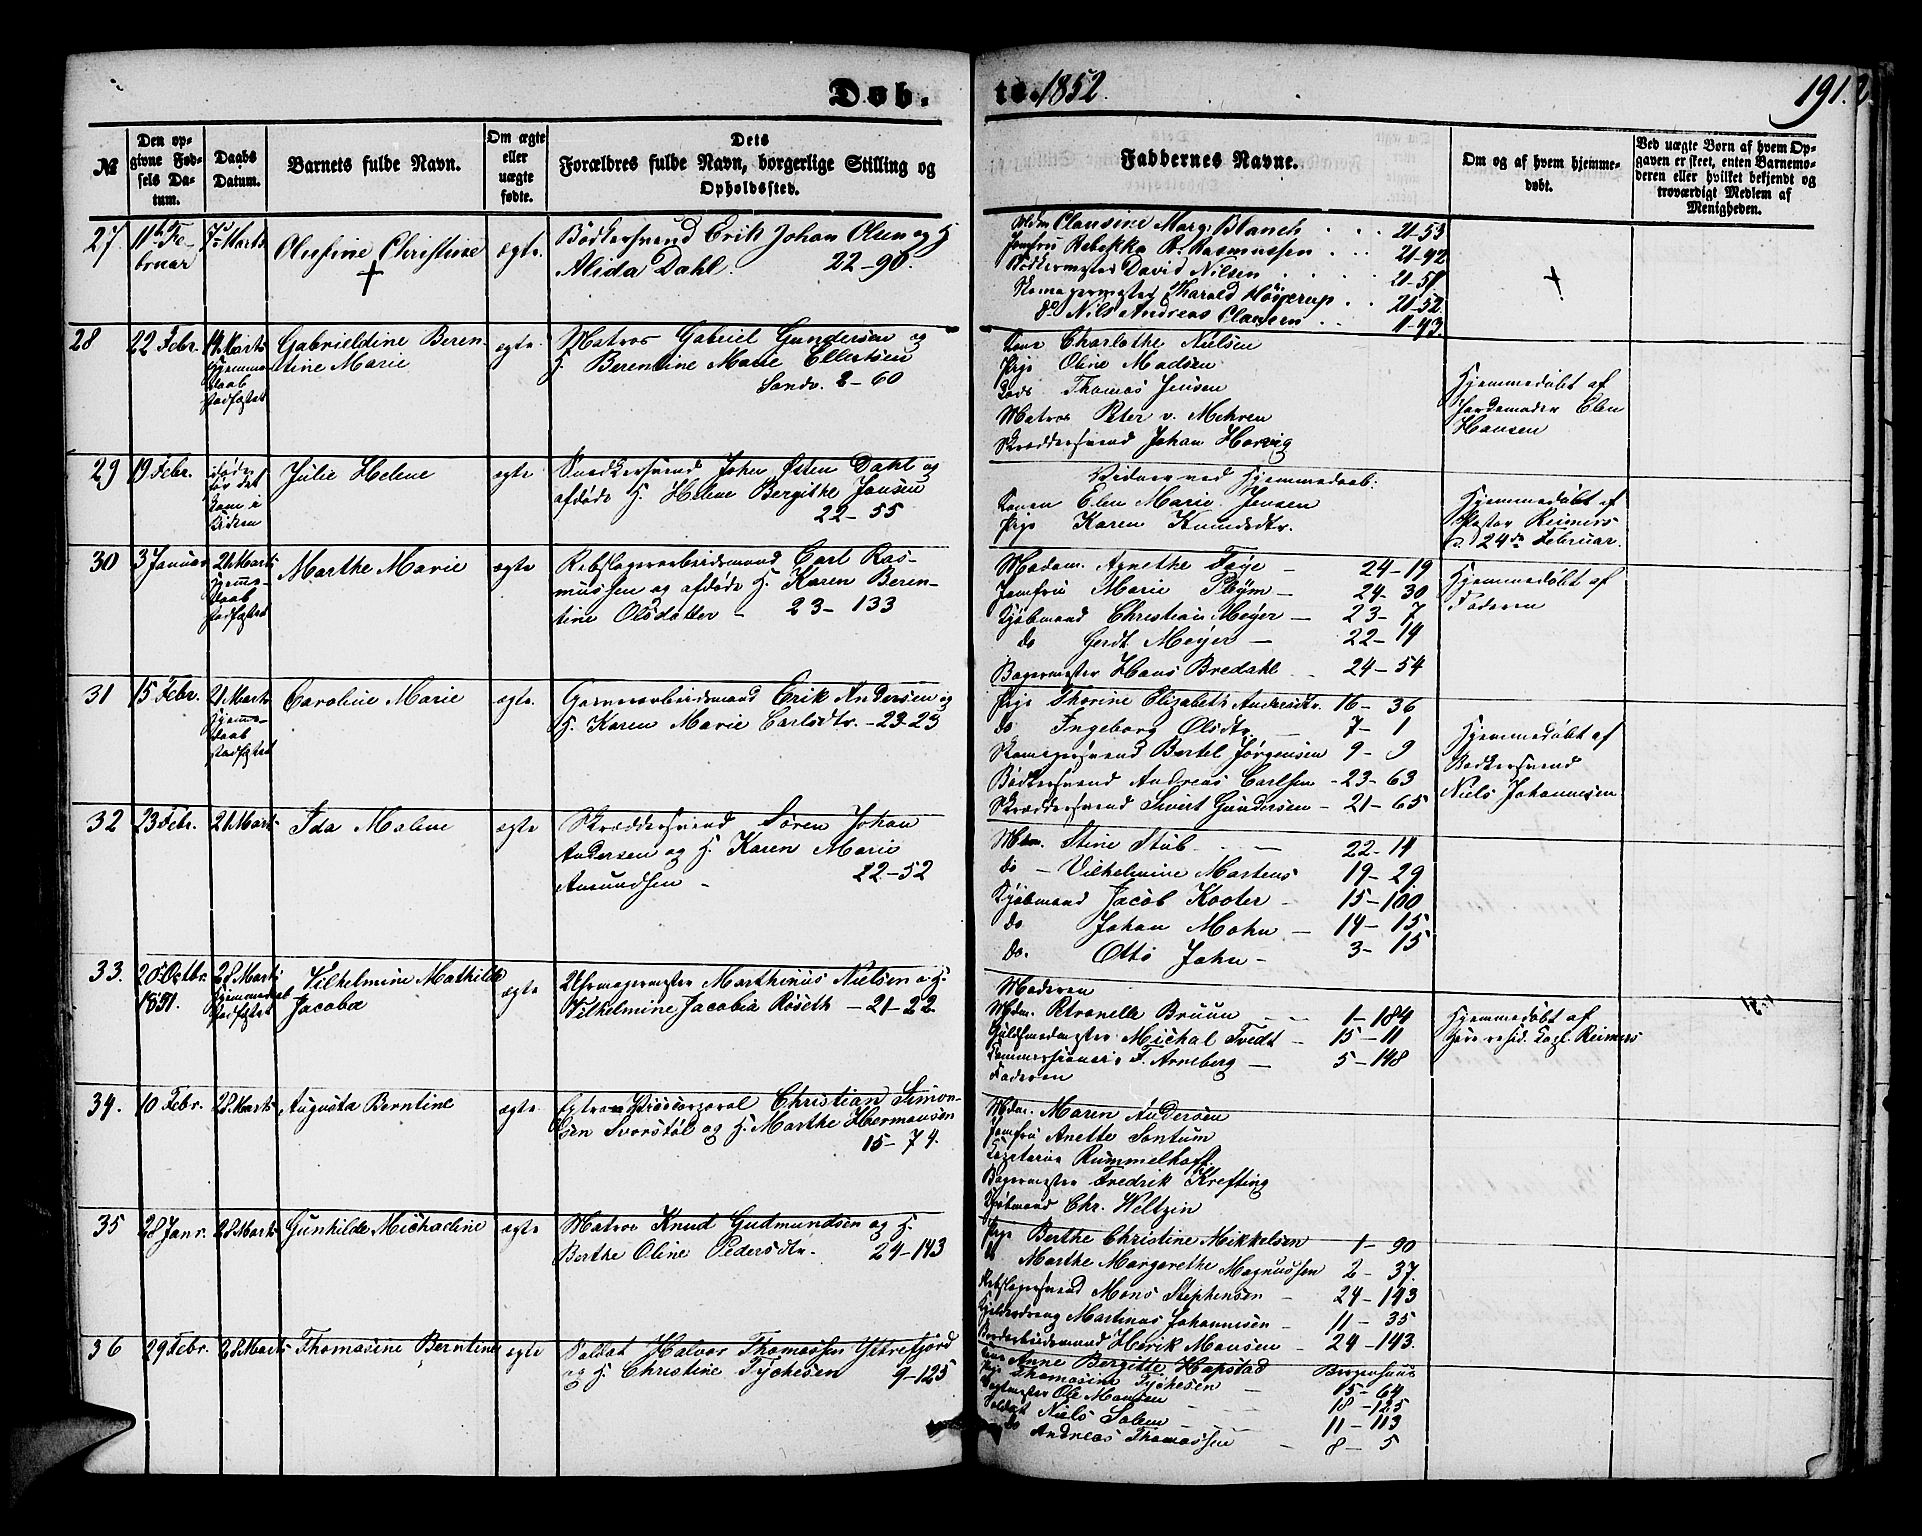 Døb.
te. 1852
191.
№
Den op-
givne Fød-
sels Da-
tum.
Daabs
Datum.
Barnets fulde Navn.
Om ægte
eller
uægte
fødte.
Dets
Forældres fulde Navn, borgerlige Stilling og
Opholdssted.
Faddernes Navne.
Om og af hvem hjemme-
døbt.
Ved uægte Børn af hvem Op-
gaven er skeet, enten Barnemo-
deren eller hvilket bekjendt og
troværdigt Medlem af
Menigheden.
27
11te Fe-
bruar
Olufine Christine
ægte.
Bødkersvend Erik Johan Olsen og H
Alida Dahl. 22-90.
Mdm Clausine Marg. Blanck 21-53
Jomfru Rebekka R. Rasmussen 21-92
Bødkermester David Nilsen 21-51
Skomagermester Harald Høyerup 21-52
do Nils Andreas Clausen 11-43
28
22 Febr.
14 Marts
Hjemme
daab
stadfæstet
Gabrieldine Beren-
tine Marie
egte.
Matros Gabriel Gundersen og
H. Berentine Marie Ellertsen
Sandv. 2-60
Kone Charlothe Nielsen
Pige Oline Madsen
Lods Thomas Jensen
Matros Peter v. Mehren
Skræddersvend Johan Hervig
Hjemmedøbt af
Jordemoder Elen
Hansen
29
19 Febr.
døde
før det
kom i
Kirken
Julie Helene
ægte
Snedkersvend John Østen Dahl og
afdøde H. Helene Bergithe Jansen
22-55
Vidner ved Hjemmedaab.
Konen Elen Marie Jensen
Pige Karen Knudsdtr.
Hjemmedøbt af
Pastor Reimers
d. 24de Februar.
30
3 Januar
21 Marts
Hjemme
daab
stadfæstet
Marthe Marie
ægte
Rebslagerarbeidsmand Carl Ras-
mussen og afdøde H. Karen Beren-
tine Olsdatter - 23-133
Madam. Agnethe Foye - 24-19
Jomfru Marie Pløym - 24-30
Kjøbmand Christian Meyer - 23-7
do Gerdt Meyer - 22-19
Bagermester Hans Bredahl 24-54
Hjemmedøbt af
Faderen
31
15 Febr.
21 Marts
Hjemme-
daab
stadfæstet
Caroline Marie
ægte.
Garverarbeidsmand Erik Andersen og
H. Karen Marie Carlsdtr. - 23-23
Pige Thorine Elizabeth Andersdtr. 16-36
do Ingeborg Olsdtr. 7-1
Skomagersvend Bertel Jørgensen 9-9
Bødkersvend Andreas Carlsen - 23-63
Skræddersvend Sivert Gundersen - 21-65
Hjemmedøbt af
Bødkersvend
Niels Johannesen
32
23 Febr.
21 Marts
Ida Malene
ægte
Skræddersvend Søren Johan
Andersen og H. Karen Marie
Amundsen - 22-52
Mdm. Stine Stub. - 22-14
do - Vilhelmine Martens 19-29.
Kjøbmand Jacob Kooter - 15-100
do Johan Mohn - 14-15
do. Otto John - 3-15
33.
28 Octbr.
1851.
28 Marts
Hjemmedaab
stadfæstet
Vilhelmine Mathilde
Jacoba
ægte
Uhrmagermester Marthinus Nielsen og H.
Vilhelmine Jacobia Røseth - 21-22
Moderen
Mdm. Petronelle Bruun 1-184
Guldsmedmester Michal Tvedt - 15-11
Kommissionair F. Arneberg - 5-148
Faderen
Hjemmedøbt af
Herr resid. Capl. Reimers
34.
10 Febr.
28 Marts
Augusta Berntine
ægte.
Extra Vicecorporal Christian Simon-
sen Svorstøl og H. Marthe Hermansen
15-74.
Mdm. Maren Andersen
Jomfru Anette Sontum
Secretaire Rummelhoff
Bagermester Fredrik Krefting
Kjøbmand Chr. Weltzin
35
28 Janr.
28 Marts
Gunhilde Michaeline
ægte
Matros Knud Gudmundsen og H.
Berthe Oline Pedersdtr. 24-143
Pige Berthe Christine Mikkelsen 1-90
d Marthe Margarethe Magnussen 2-37.
Rebslagersvend Mons Stephensen - 24-143
Kjelderdreng Martinus Johannesen - 11-35
Arbeidsmand Henrik Monsen - 24-143.
36
29 Febr.
28 Marts
Thomasine Berntine
ægte
Soldat Halvor Thomassen Ystrefjord
og H. Christine Tychesen 9-125
Anne Bergitte Hopstad Bergenhuus
Pige Thomasine Tychesen - 15-64
Ole Monsen 18-125
Soldat Niels Solem 11-113
do Andreas Thomassen - 8-5